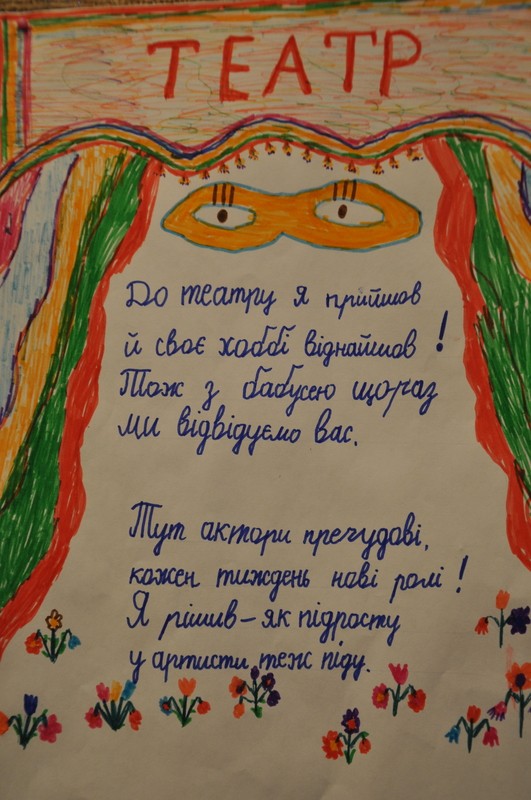 ТЕАТР
До театру я прийшов
й своє хоббі віднайшов!
Тож з бабусею щораз
ми відвідуємо вас.
Тут актори пречудові,
кожен тиждень нові ролі!
Я рішив – як підросту
у артисти теж піду.